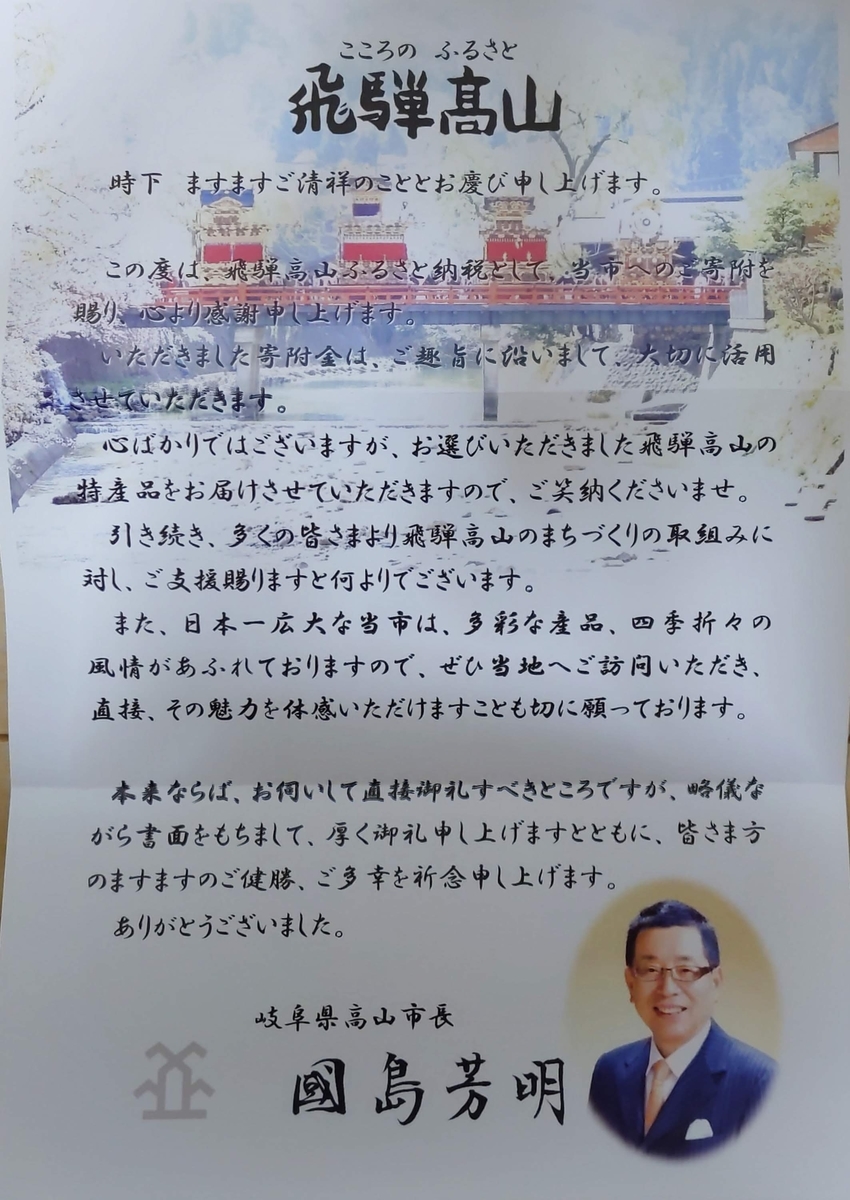 こころの ふるさと
飛騨高山
時下 ますますご清祥のこととお慶び申し上げます。
この度は、飛騨高山ふるさと納税として、当市へのご寄附を
賜り、心より感謝申し上げます。
いただきました寄附金は、ご趣旨に沿いまして、大切に活用
させていただきます。
心ばかりではございますが、お選びいただきました飛騨高山の
特産品をお届けさせていただきますので、ご笑納くださいませ。
引き続き、多くの皆さまより飛騨高山のまちづくりの取組みに
対し、ご支援賜りますと何よりでございます。
また、日本一広大な当市は、多彩な産品、四季折々の
風情があふれておりますので、ぜひ当地へご訪問いただき、
直接、その魅力を体感いただけますことも切に願っております。
本来ならば、お伺いして直接御礼すべきところですが、略儀な
がら書面をもちまして、厚く御礼申し上げますとともに、皆さま方
のますますのご健勝、ご多幸を祈念申し上げます。
ありがとうございました。
岐阜県高山市長
國島芳明